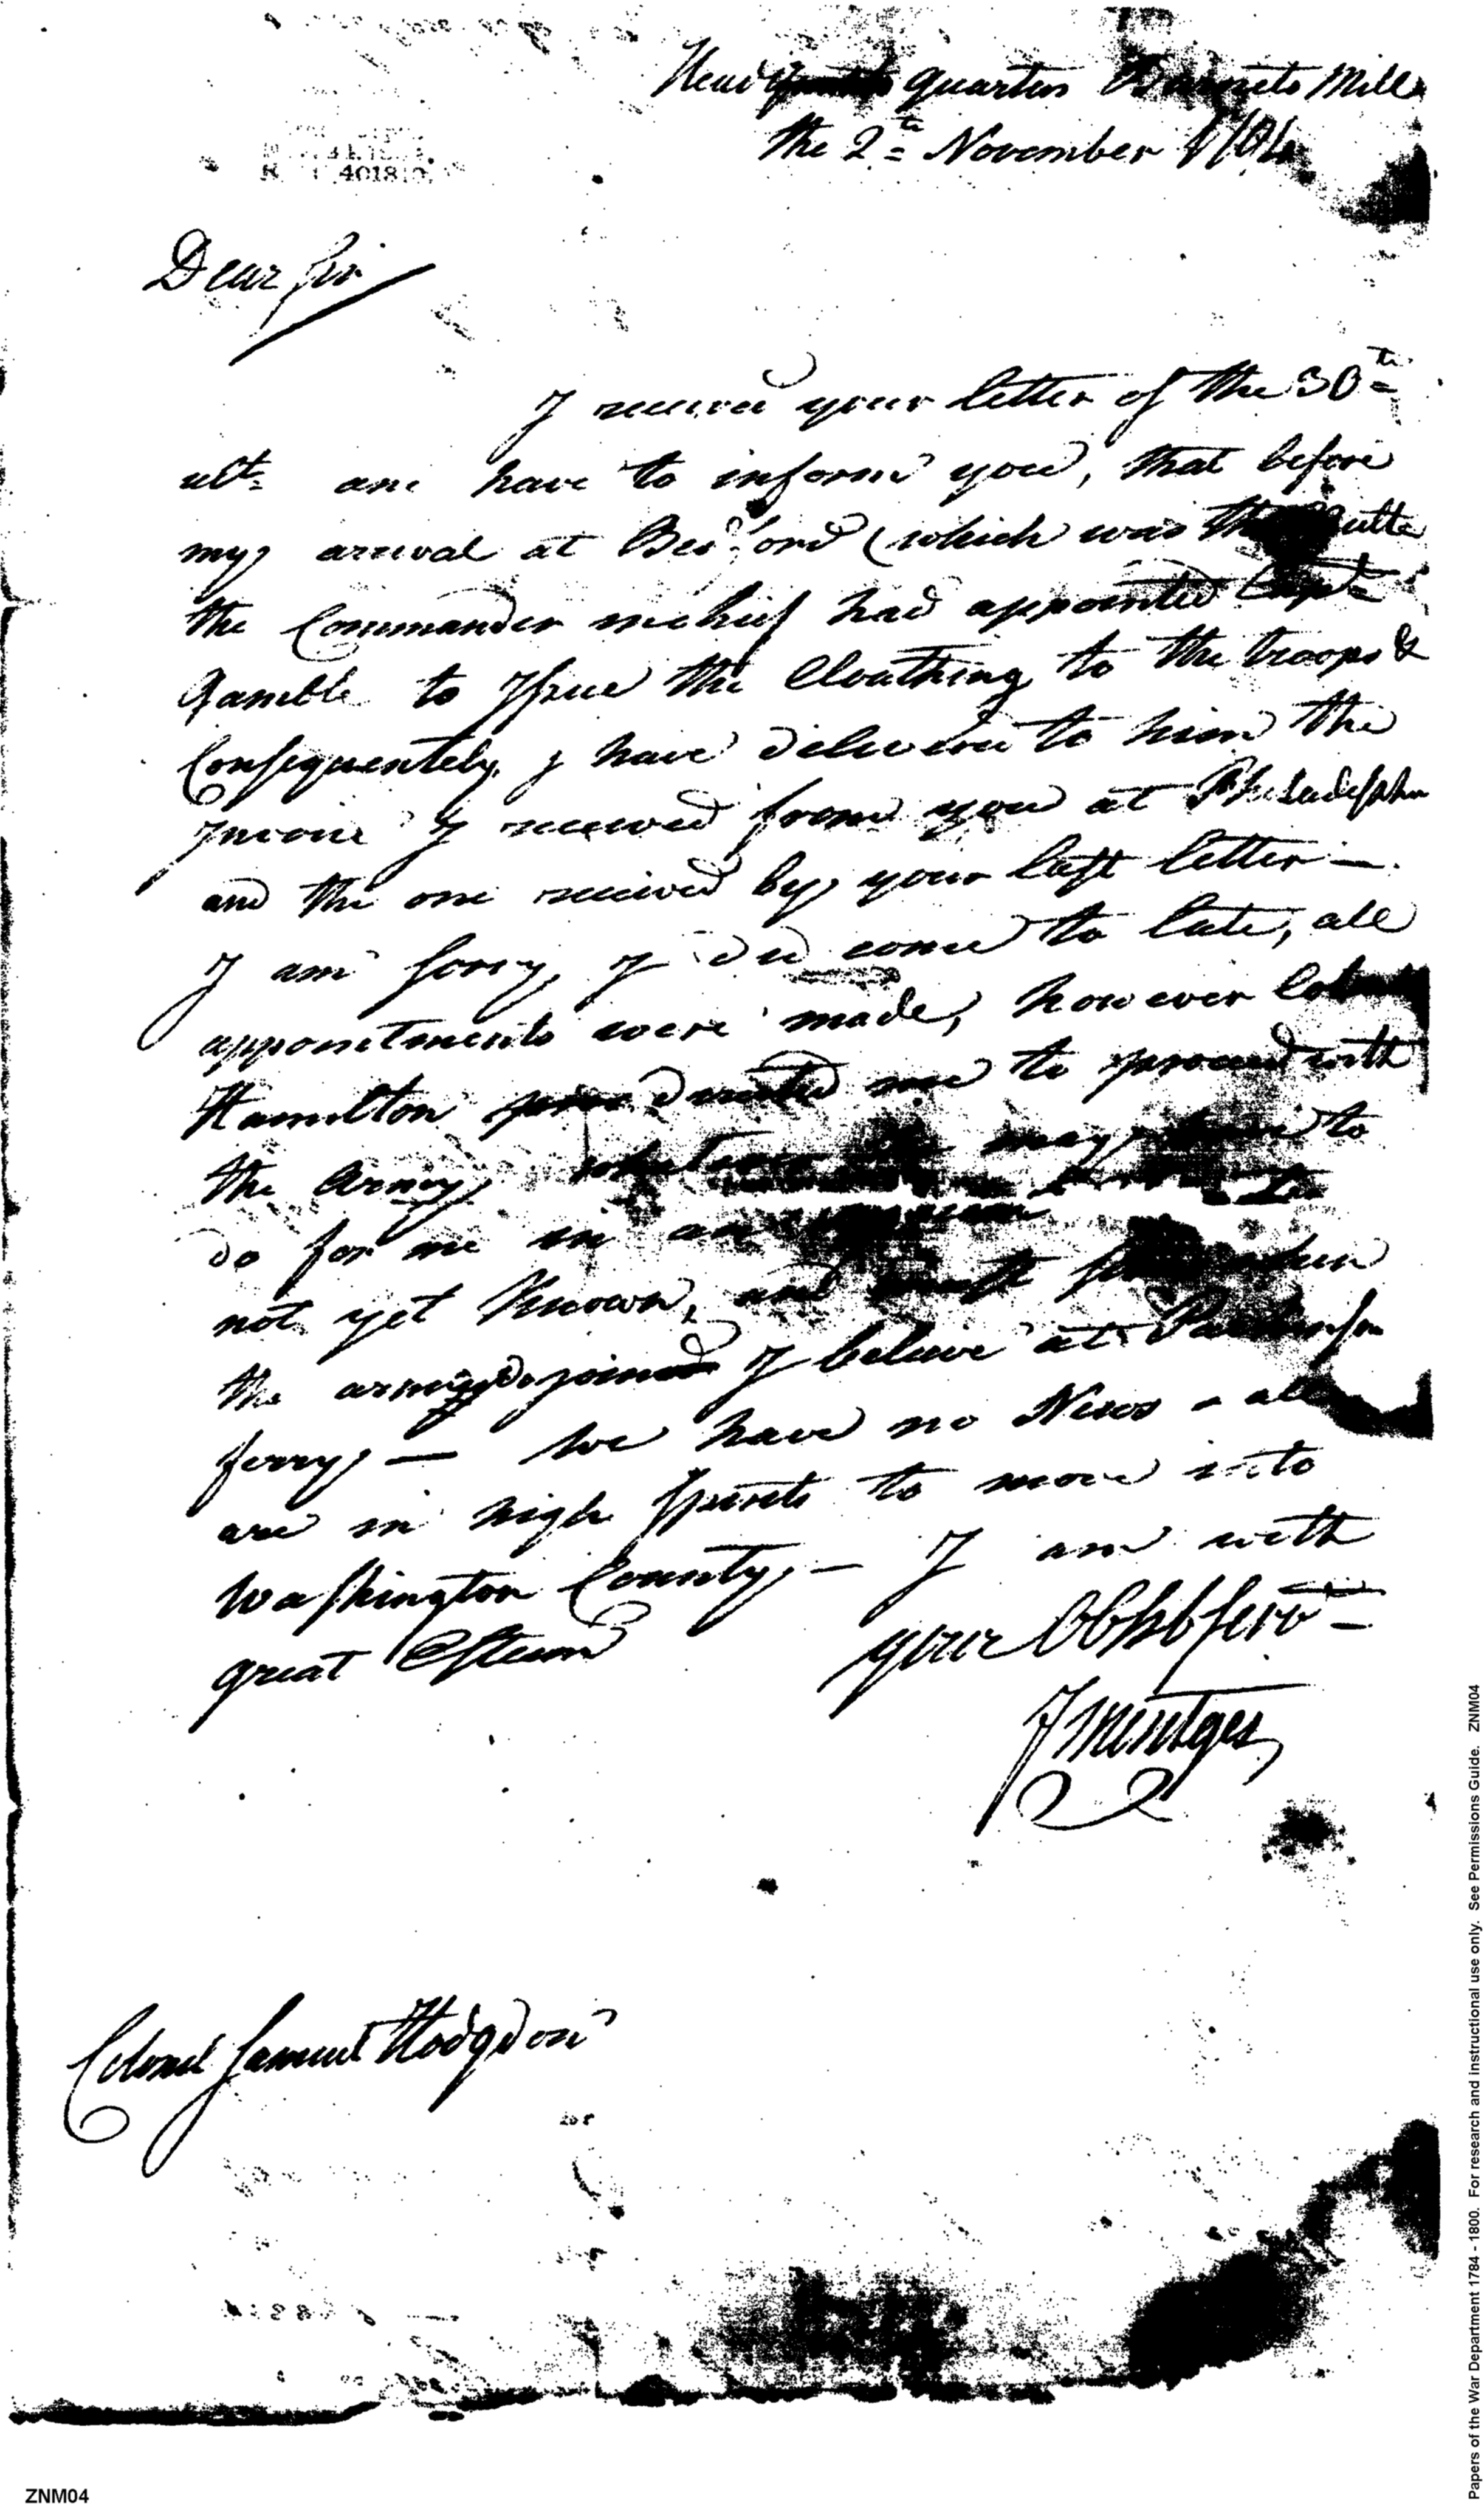 Head quarters Barnets Mill
the 2th November 1794
Dear Sir
I received your letter of the 30th
ult. and have to inform you, that before
my arrival at Bedford (which was the
the Commander inchief had appointed Capt
Gamble to Issue the Cloathing to the troops &
Consequently I have delivered to him the
Invoice I received from you at Philadelphia
and the one received by your last letter —
I am sorry I did come to late, all
appointments were made, however
Hamilton me to proceed with
the Army, whatever may to
do for me in
not yet known, and when
the army joined I believe at
ferry — We have no News - all
are in high Spirits to move into
Washington County, — I am with
great Esteem your Obht Serv
F Mentges
Colonel Samuel Hodgdon
401810
Papers of the War Department 1784 - 1800. For research and instructional use only. See Permissions Guide. ZNM04
ZNM04